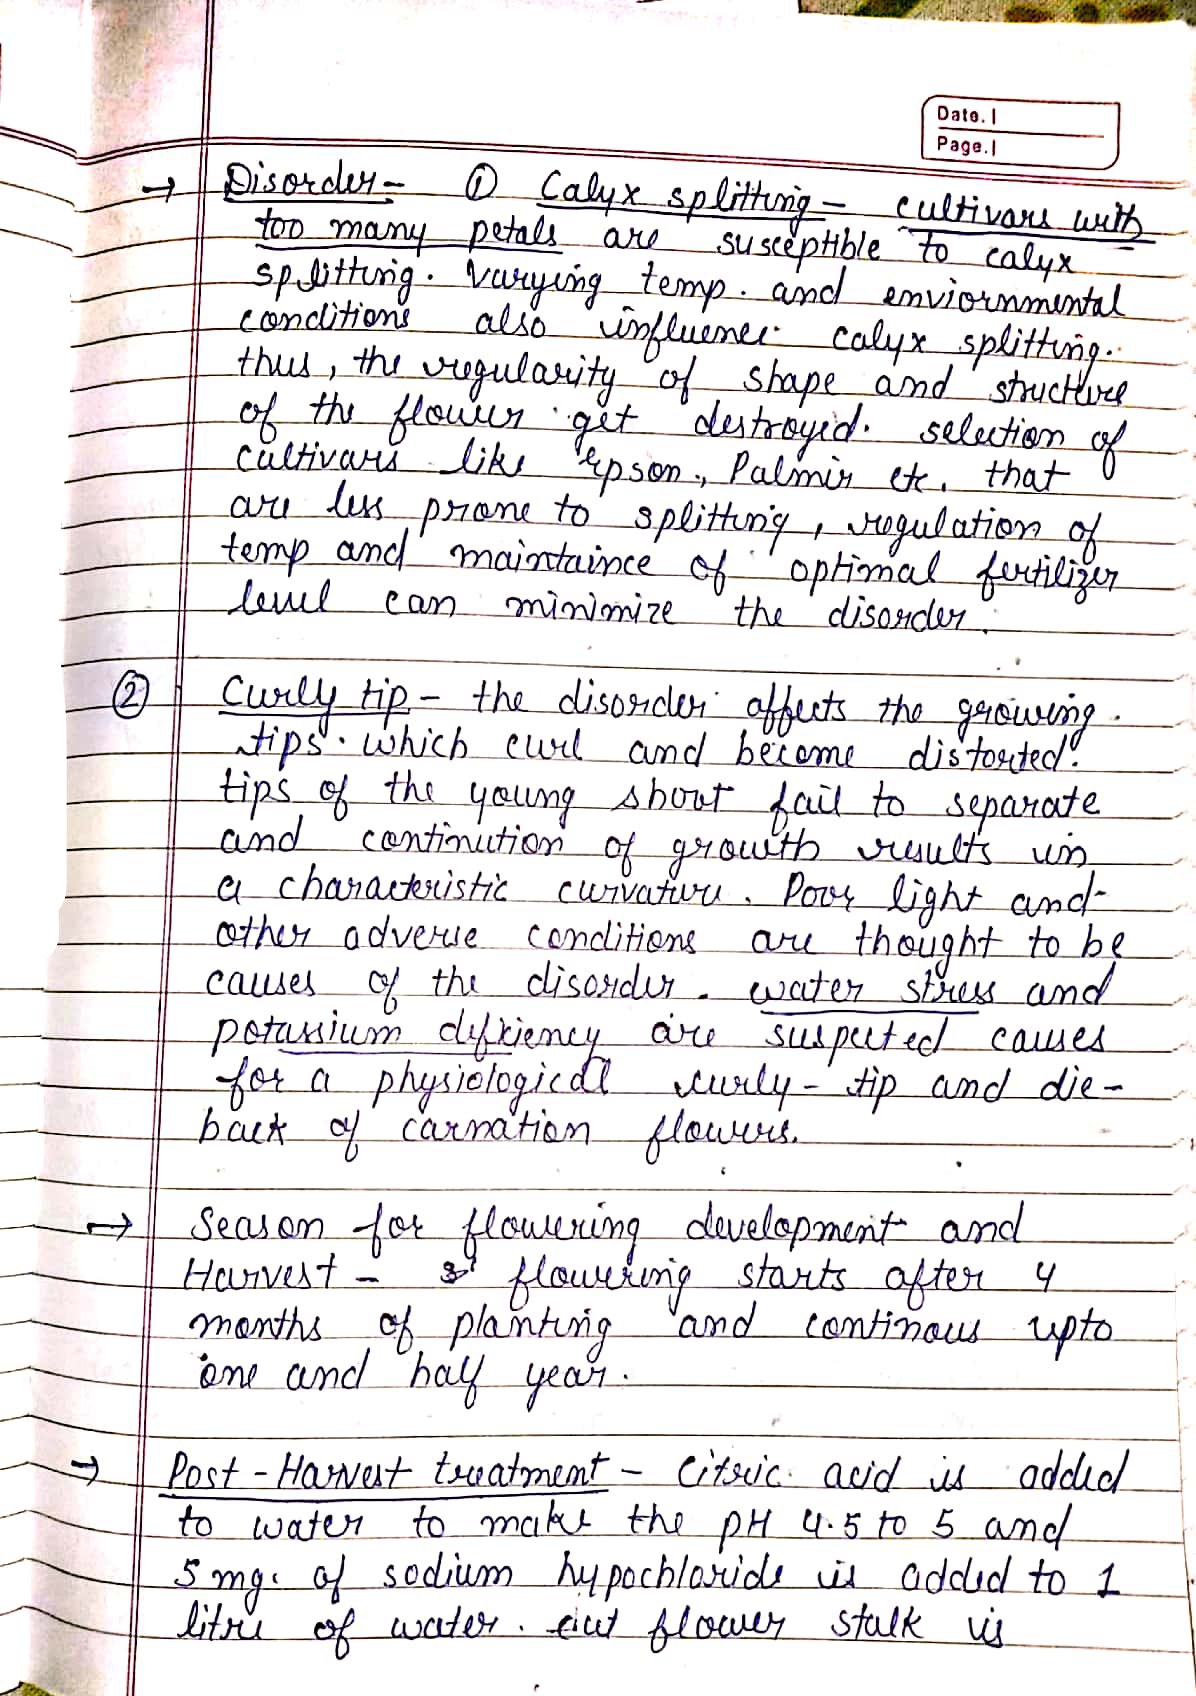 Date.
Page.
→ Disorder - ① Calyx splitting - cultivars with
too many petals are susceptible to calyx
splitting. Varying temp. and enviornmental
conditions also influence calyx splitting.
thus, the regularity of shape and structure
of the flower get destroyed. selection of
cultivars like epson, Palmir etc. that
are less prone to splitting, regulation of
temp and maintaince of optimal fertilizer
level can minimize the disorder.
② Curly tip - the disorder affects the growing
tips. which curl and become distorted.
tips of the young shoot fail to separate
and continution of growth results in
a characteristic curvature. Poor light and
other adverse conditions are thought to be
causes of the disorder. water stress and
potassium dificiency are suspected causes
for a physiological curly-tip and die-
back of carnation flowers.
→ Season for flowering development and
Harvest - flowering starts after 4
months of planting and continous upto
one and half year.
→ Post-Harvest treatment - Citric acid is added
to water to make the pH 4.5 to 5 and
5 mg. of sodium hypochloride is added to 1
litre of water. cut flower stalk is